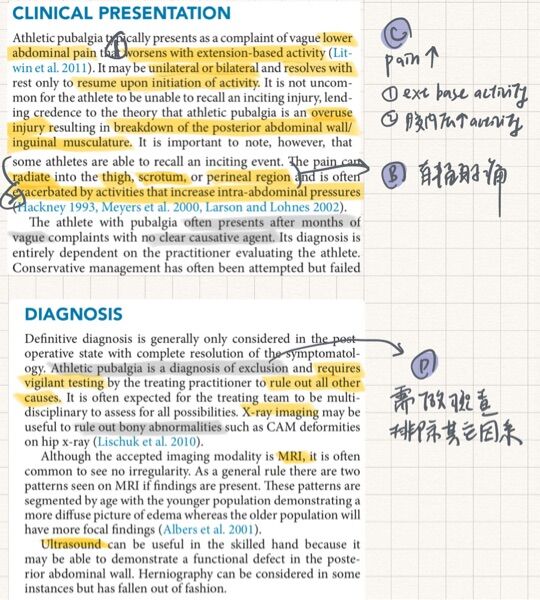 CLINICAL PRESENTATION
Athletic pubalgia typically presents as a complaint of vague lower
abdominal pain that worsens with extension-based activity (Lit-
win et al. 2011). It may be unilateral or bilateral and resolves with
rest only to resume upon initiation of activity. It is not uncom-
mon for the athlete to be unable to recall an inciting injury, lend-
ing credence to the theory that athletic pubalgia is an overuse
injury resulting in breakdown of the posterior abdominal wall/
inguinal musculature. It is important to note, however, that
some athletes are able to recall an inciting event. The pain can
radiate into the thigh, scrotum, or perineal region and is often
exacerbated by activities that increase intra-abdominal pressures
(Hackney 1993, Meyers et al. 2000, Larson and Lohnes 2002).
The athlete with pubalgia often presents after months of
vague complaints with no clear causative agent. Its diagnosis is
entirely dependent on the practitioner evaluating the athlete.
Conservative management has often been attempted but failed
C
pain ↑
① ext base activity
② 腹内力↑ activity
B 有輻射痛
DIAGNOSIS
Definitive diagnosis is generally only considered in the post
operative state with complete resolution of the symptomatol-
ogy. Athletic pubalgia is a diagnosis of exclusion and requires
vigilant testing by the treating practitioner to rule out all other
causes. It is often expected for the treating team to be multi-
disciplinary to assess for all possibilities. X-ray imaging may be
useful to rule out bony abnormalities such as CAM deformities
on hip x-ray (Lischuk et al. 2010).
Although the accepted imaging modality is MRI, it is often
common to see no irregularity. As a general rule there are two
patterns seen on MRI if findings are present. These patterns are
segmented by age with the younger population demonstrating a
more diffuse picture of edema whereas the older population will
have more focal findings (Albers et al. 2001).
Ultrasound can be useful in the skilled hand because it
may be able to demonstrate a functional defect in the poste-
rior abdominal wall. Herniography can be considered in some
instances but has fallen out of fashion.
D
需做理查
排除其它因素